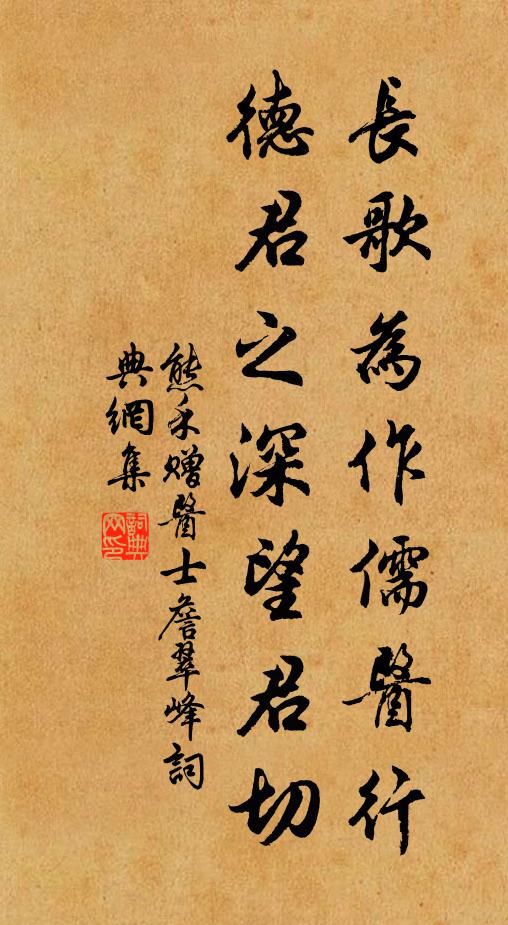 長歌為作儒醫行
德君之深望君切
熊禾贈醫士詹翠峰詞
典網集
詞典
网印